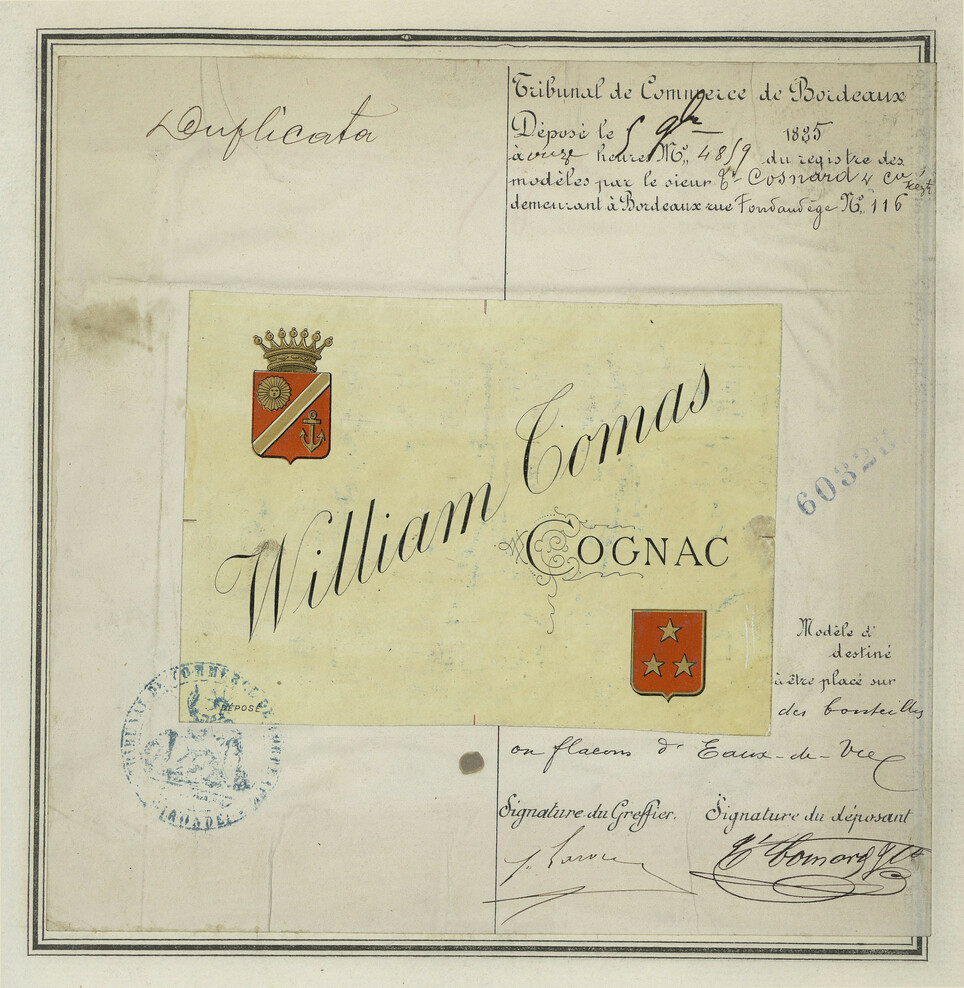 Duplicata
Tribunal de Commerce de Bordeaux
Déposé le 5 9bre 1885
à onze heures No, 4859 du registre des
modèles par le sieur Ct Cosnard & Cie
demeurant à Bordeaux rue Fondaudège No, 116
60328
William Comas
COGNAC
DÉPOSÉ
Modèle d'
destiné
à être placé sur
des bouteilles
ou flacons d'Eaux-de-Vie
TRIBUNAL DE COMMERCE DE BORDEAUX
Signature du Greffier.
Signature du déposant